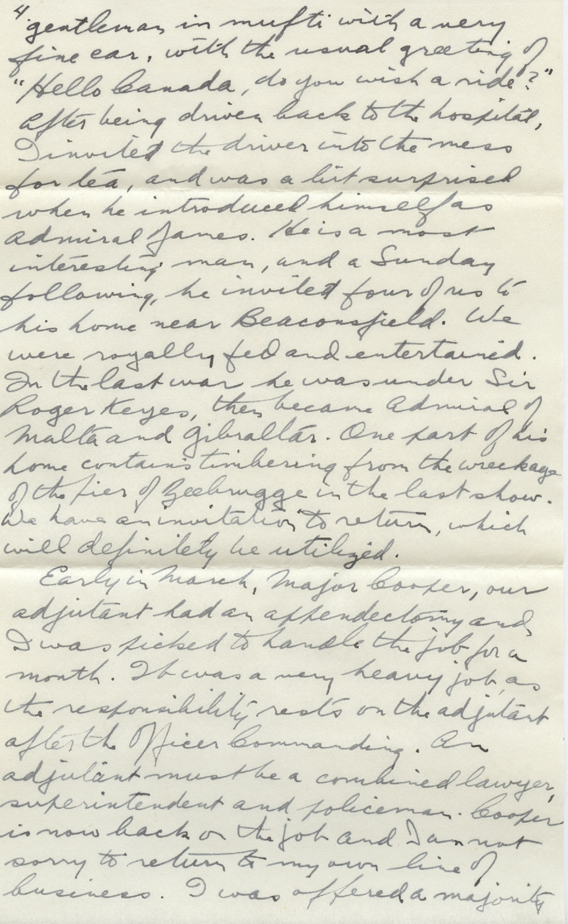 4
gentleman in mufti with a very
fine car, with the usual greeting of
"Hello Canada, do you wish a ride?"
After being driven back to the hospital,
I invited the driver into the mess
for tea, and was a bit surprised
when he introduced himself as
Admiral James. He is a most
interesting man, and a Sunday
following, he invited four of us to
his home near Beaconsfield. We
were royally fed and entertained.
In the last war he was under Sir
Roger Keyes, then became Admiral of
Malta and Gibraltar. One part of his
home contains timbering from the wreckage
of the pier of Zeebrugge in the last show.
We have an invitation to return, which
will definitely be utilized.
Early in March, Major Cooper, our
adjutant had an appendectomy and
I was picked to handle the job for a
month. It was a very heavy job, as
the responsibility rests on the adjutant
after the Officer Commanding. An
adjutant must be a combined lawyer,
superintendent and policeman. Cooper
is now back on the job and I am not
sorry to return to my own line of
business. I was offered a majority